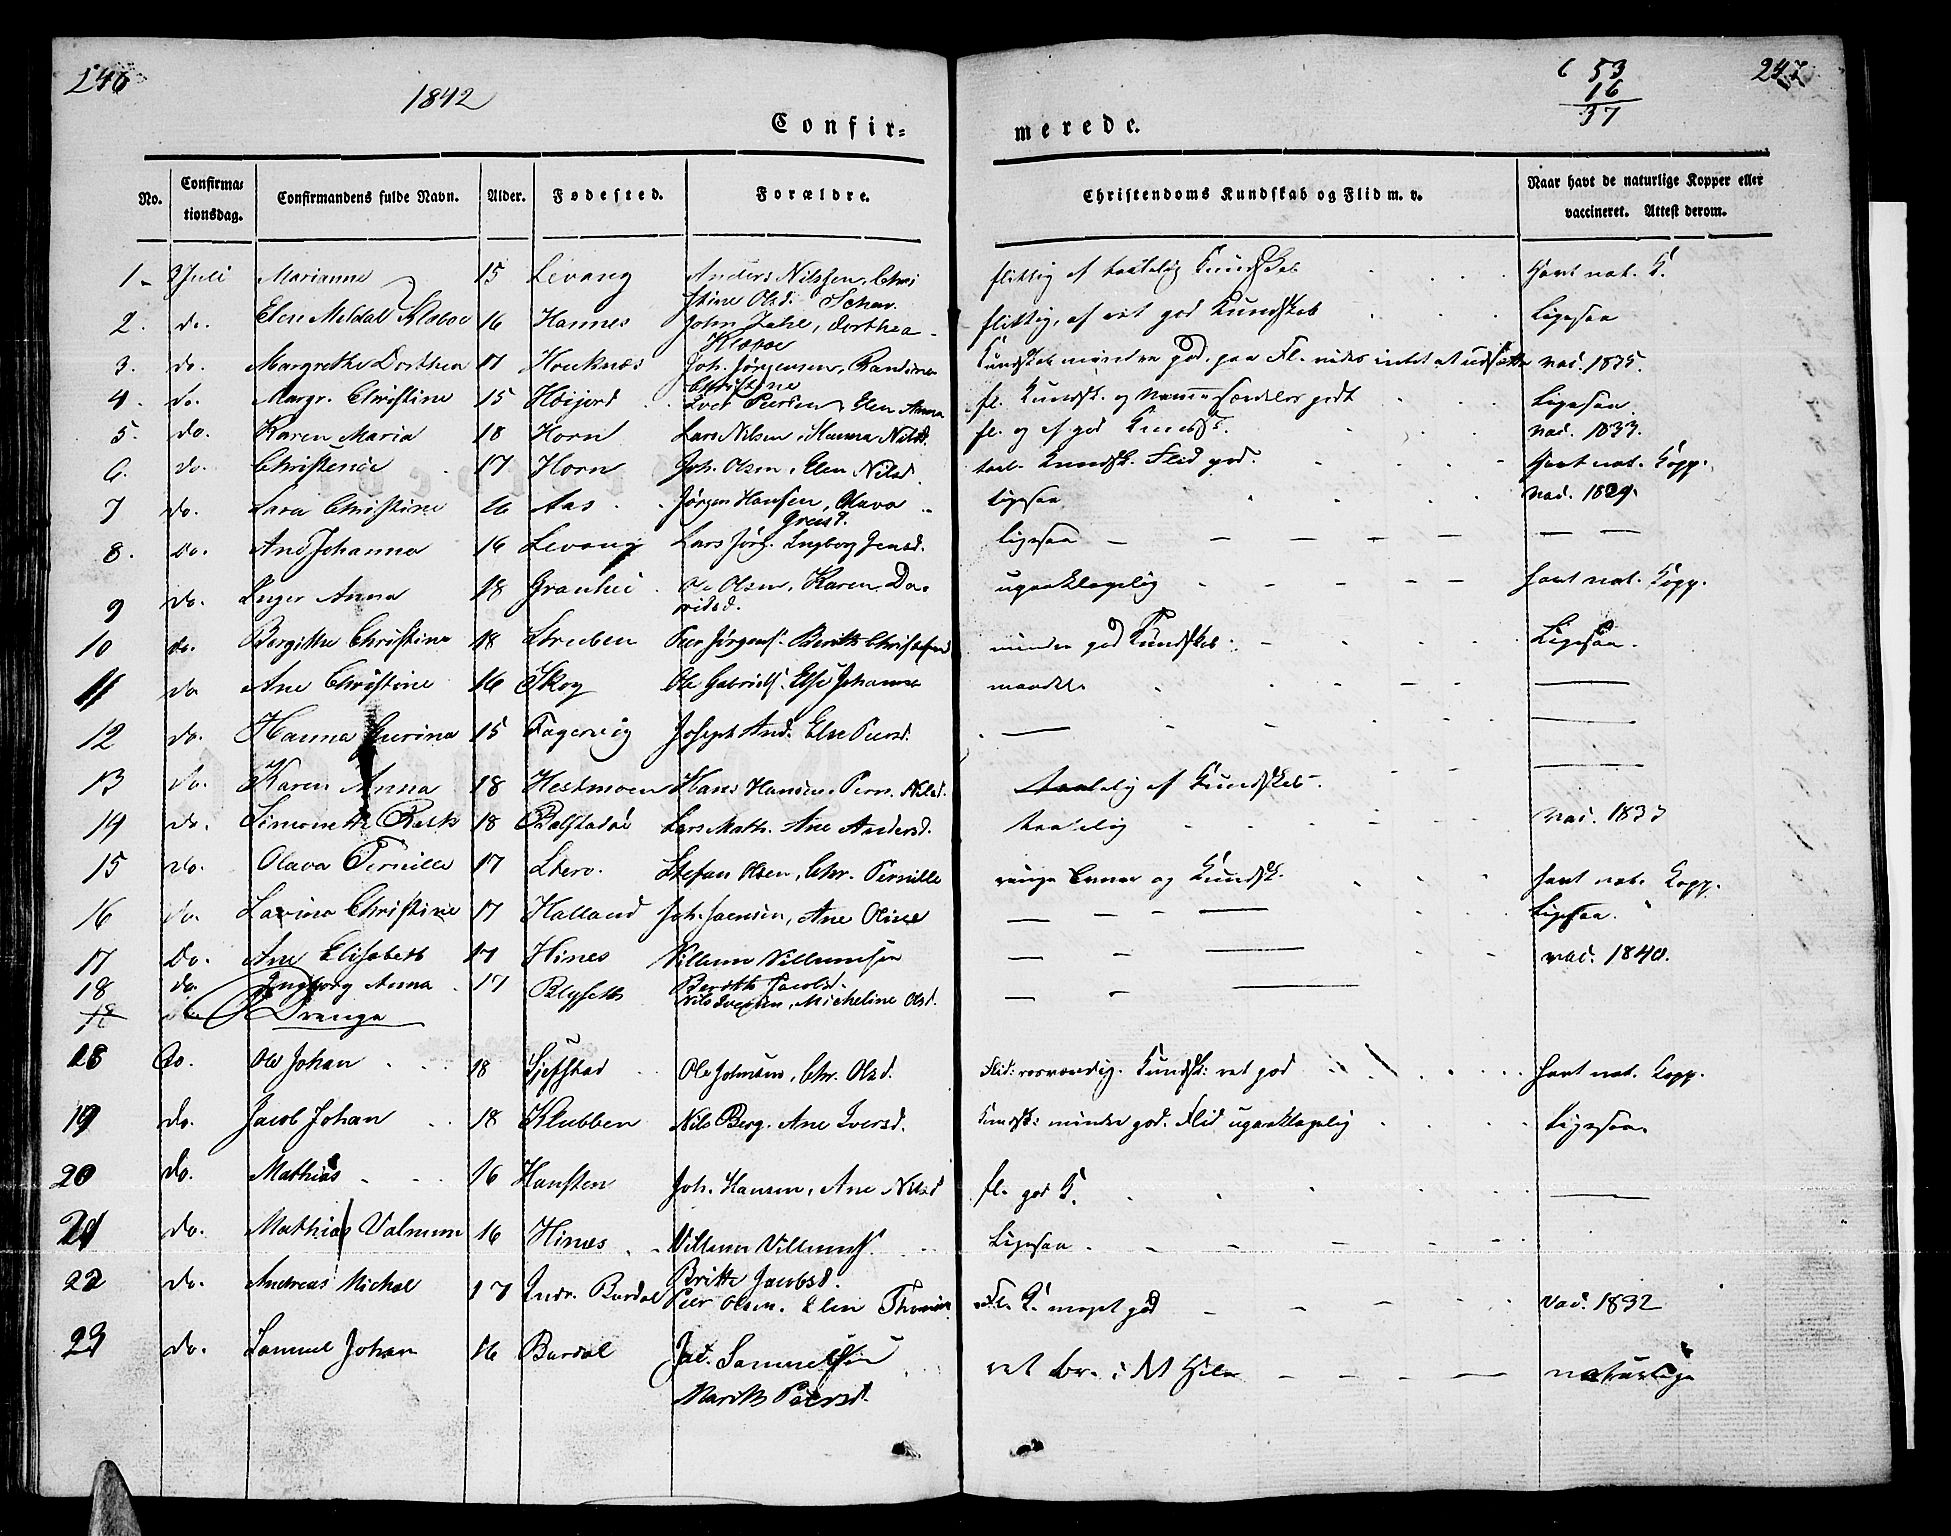 246
1842
Confir=
merede.
6 53
16
37
247
No.
Confirma=
tionsdag.
Confirmandens fulde Navn.
Alder.
Fødested.
Forældre.
Christendoms Kundskab og Flid m. v.
Naar havt de naturlige Kopper eller
vaccineret. Attest derom.
1 3 Juli Marianne 15 Levang Anders Nilssen, Chri flittig af taalelig Kundskab havt nat. K.
stine Olsd.
2. do. Elen Meldal Klæboe 16 Hannes John, Dorthea flittig, af ret god Kundskab Ligesaa
Klæboe
3. do. Margrethe Dorthea 17 Joh. Jørgensen, Randine Kundskab mindre god, paa Fl. vides intet at udsætte vac. 1835.
Christine
4. do. Margr. Christine 15 Høijord Peersen, Elen Anna fl. Kundsk. og særdeles godt Ligesaa
5. do. Karen Maria 18 Horn Lars Nilsen, Hanna Nilsd. fl. og af god Kundsk. vac. 1833.
6. do. Christence 17 Horn Joh. Olsen, Elen Nilsd. taal. Kundsk. Flid god. havt nat. Kopp.
7 do. Lava Christine 16 Aas Jørgen Hansen, Olava ligesaa vac. 1829.
8. do. Ane Johanna 16 Levang Lars Jørg. Ingborg Jensd. ligesaa — — — — — — —
9 do. Inger Anna 18 Granhei Ole Olsen, Karen Da- upaaklagelig havt nat. Kopp.
vidsd.
10 do. Bergitte Christine 18 Struben Peer Jørgens. Berith Christofersd mindre god Kundskab Ligesaa.
11 do Ane Christine 16 Skog Ole Gabriels. Else Johanna maadel. —
12 do. Hanna Gurina 15 Fagervig Joseph And. Else Peersd. — —
13 do. Karen Anna 18 Hestmoen Hans Hansen, Pern. Nilsd. taalelig af Kundskab —
14 do. Simonette Rask 18 Balstadøe Lars Math. Ane Andersd. taalelig vac. 1833
15 do. Olava Pernille 17 Sterv. Stefan Olsen, Chr. Pernille ringe Evner og Kundsk. havt nat. Kopp.
16 do. Lavina Christine 17 Halland Joh. Jaensen, Ane Oline — — — — Ligesaa.
17 Do. Ane Elisabeth 17 Hines Villum Villumsen — — — vac. 1840.
Berith Jacobsd.
18 do. Ingborg Anna 17 Blyseth Nils Iversen, Micheline Olsd. — — —
Drenge
18 do. Ole Johan 18 Sjefstad Ole Johnsen, Chr. Olsd. Flid: rosværdig. Kundsk: ret god havt nat. Kopp.
19 do. Jacob Johan 18 Klubben Nils Berg. Ane Iversd. Kundsk: mindre god. Flid upaaklagelig Ligesaa.
20 do. Mathias 16 Hansten Joh. Hansen, Ane Nilsd fl. god K. —
21 do. Mathias Valnum 16 Hines Villum Villums. Ligesaa
Britte Jacobsd.
22 do. Andreas Michal 17 Indr. Bardal Peer Olsen. Elen Fl. K. meget god vac. 1832
23 do. Samuel Johan 16 Bardal Jac. Samuelsen ret br. i det Hele naturlige
Marith Peersd.